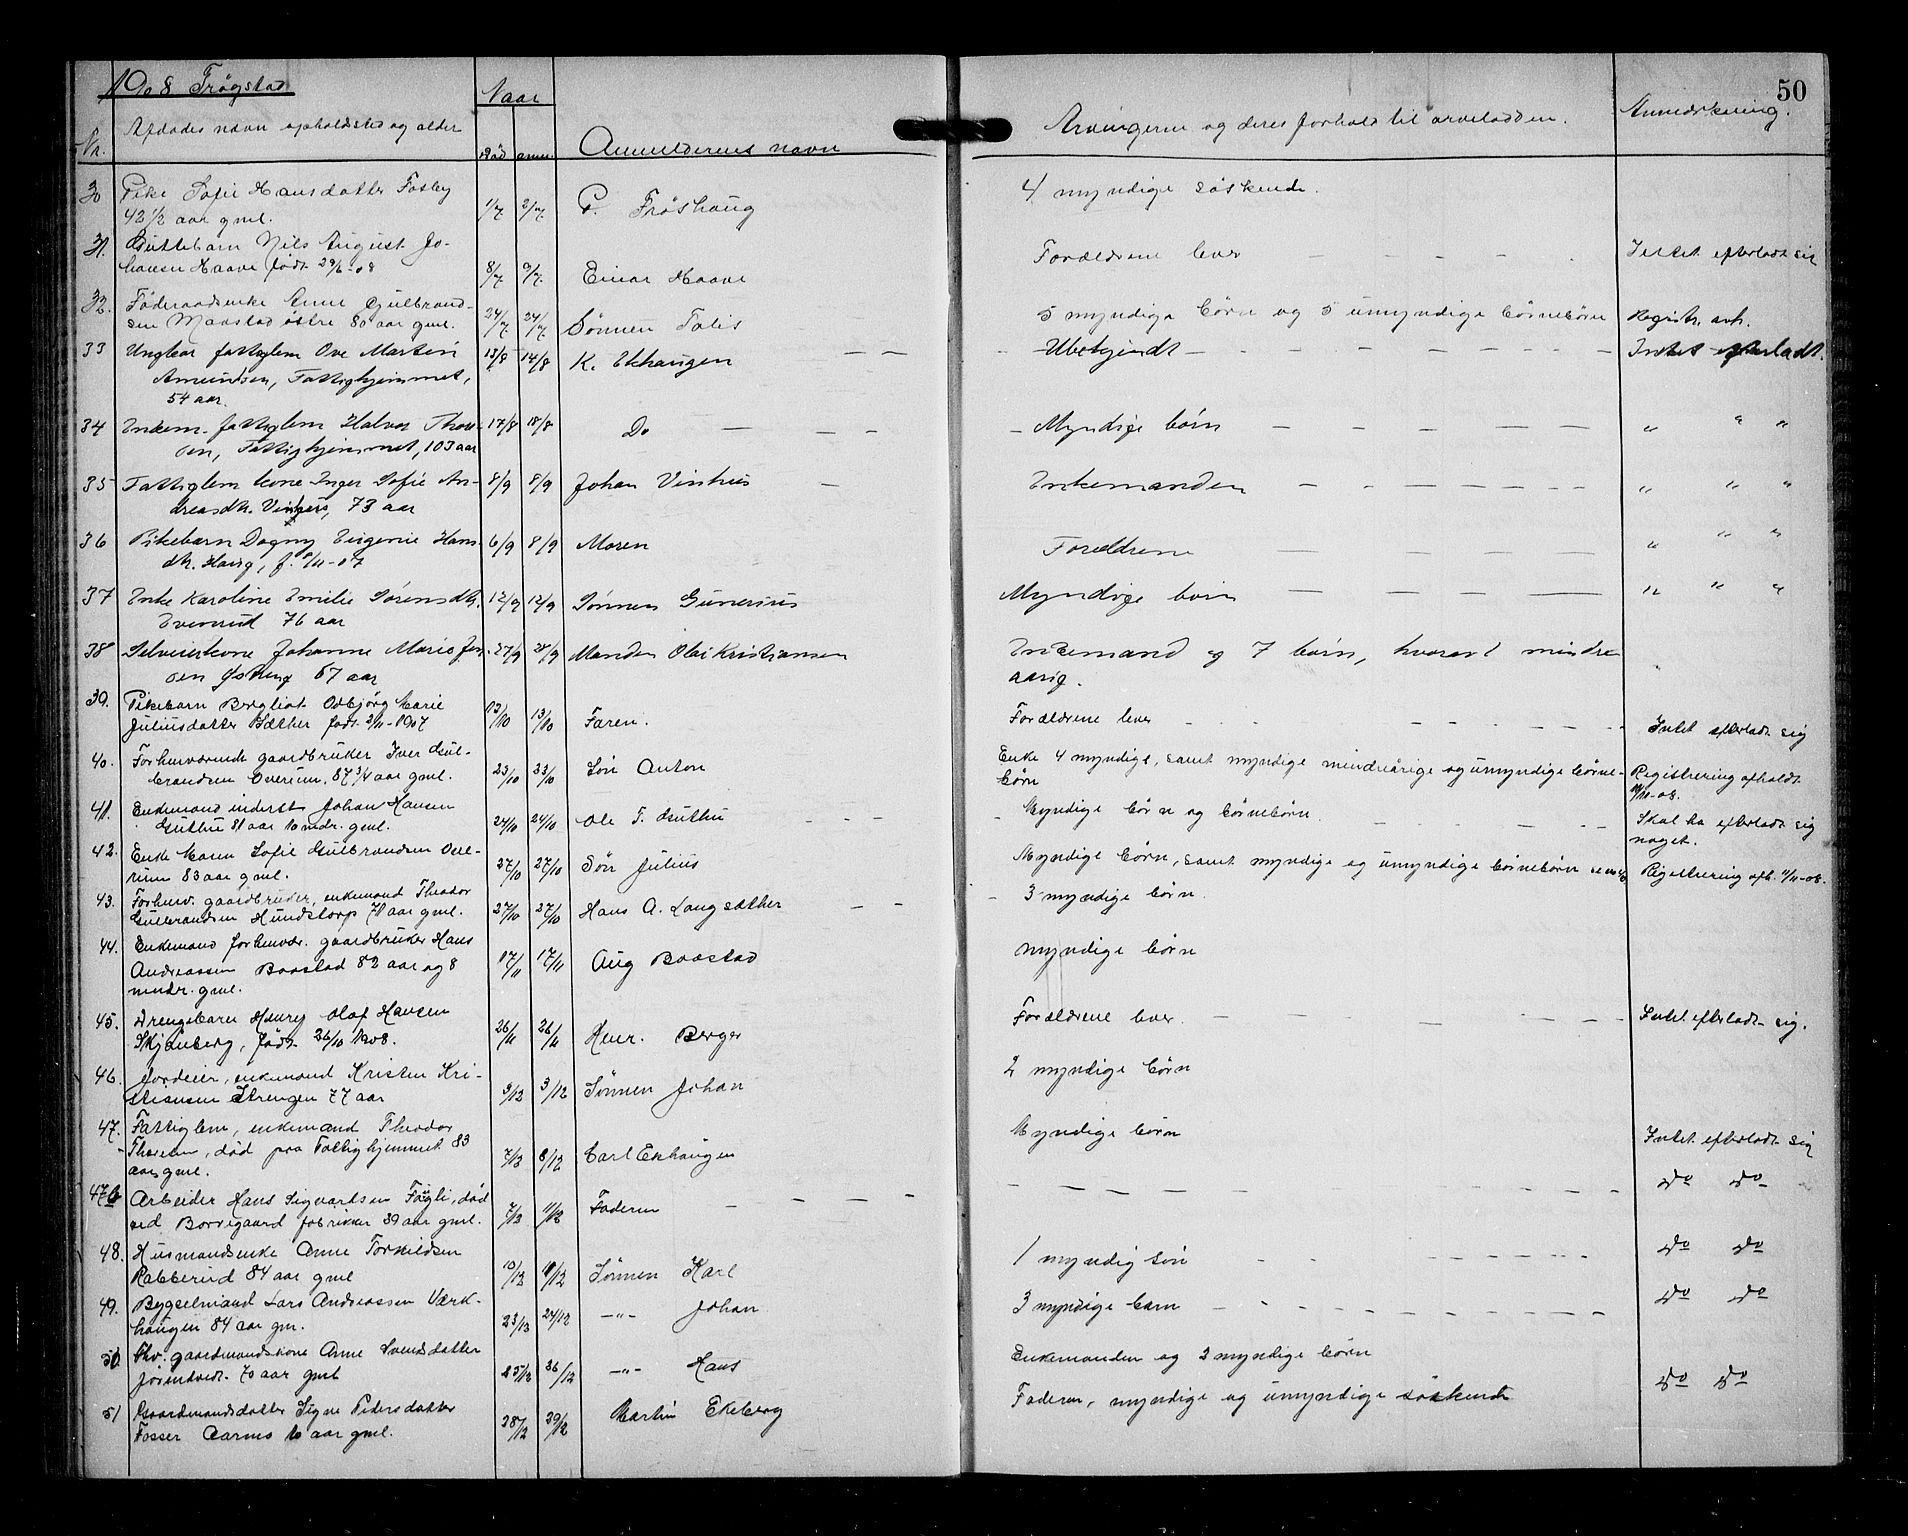 1908 Trøgstad
50
Nr.
Afdødes navn opholdsted og alder
Naar
Død anm.
Anmelderens navn
Arvingerne og deres forhold til arveladeren.
Anmerkning.
30 Pike Sofie Hansdatter Fosby 1/7 2/7 P. Frøshaug 4 myndige søskende.
42 1/2 aar gml.
31. Guttebarn Nils August Jo-
hansen Haave født 29/6-08 8/7 9/7. Einar Haave Forældrene lever - - - - Intet efterladt sig
32. Føderaadsenke Anne Gulbrand-
sen Maastad østre 80 aar gml. 24/7 24/7 Sønnen 5 myndige børn og 5 umyndige børnebørn Registr. avh.
33 Ungkar fattiglem Ove Martin 13/8 14/8 K. Ekhaugen - - Ubekjendt - - - - Intet efterladt.
Amundsen, Fattighjemmet,
54 aar.
34 Enkem. fattiglem Halvor Thor- 17/8 18/8 Do - - - Myndige børn - - - - " " "
sen, Fattighjemmet, 103 aar
35 Fattiglem kone Inger Sofie An- 8/9 8/9 Johan Vinhus - Enkemanden - - - - " " "
dreasdtr. 73 aar
36 Pikebarn Dagny Eugenie Hans- 6/9 8/9 Moren Forældrene - - - - " " "
dtr. f. 8/11-07
37 Enke Karoline Emilie Sørensdtr. 12/9 12/9 Sønnen Gunerius Myndige børn - - - - " " "
76 aar
38 Selveierkone Johanne Marie Jen- 27/9 28/9 Manden Olai Kristiansen Enkemand og 7 børn, hvorav 1 mindre-
sen 67 aar aarig.
39. Pikebarn Bergliot Odbjørg Marie
Juliusdatter Sæther født 2/11-1907 12/10 13/10 Faren. Forældrene lever - - - - Intet efterladt sig
40. Forhenværende gaardbruker Iver Gul-
brandsen Overum, 87 3/4 aar gml. 23/10 23/10 Søn Anton Enke 4 myndige, samt myndige mindreårige og umyndige børne-
børn Registrering afholdt
41. Enkemand inderst Johan Hansen
Guthu 81 aar 10 mdr. gml. 24/10 24/10 Ole T. Guthu - - - Myndige børn og børnebørn. - - - Skal ha efterladt sig
noget.
42. Enke Maren Sofie Gulbrandsen Ove-
rum 83 aar gml. 27/10 27/10 Søn Julius Myndige børn, samt myndige og umyndige børnebørn Registrering afh. 11/11-08.
43. Forhenv. gaardbruker, enkemand Theodor
Gulbrandsen Hundstorp 71 aar gml. 27/10 27/10 Hans A. Langsæther - - - 3 myndige børn.
44. Enkemand forhenvær. gaardbruker Hans
Andreassen Baastad 82 aar og 8 17/11 17/11 Aug Baastad myndige børn
mndr. gml.
45. Drengebarn Henry Olaf Hansen
Skjønberg, født 26/10 1908. 26/11 26/11 Henr. Berger Forældrene lever. - - - - Intet efterladt sig.
46. Jordeier, enkemand Kristen Kri-
stiansen Strengen 77 aar 3/12 3/12 Sønnen Johan 2 myndige børn
47. Fattiglem, enkemand Theodor
Thoresen, død paa Fattighjemmet 83 7/12 8/12 Carl Ekhaugen Myndige børn Intet efterladt sig
aar gml.
47b Arbeider Hans Sigvartsen død
ved Borregaard fabrikker 39 aar gml. 7/12 11/12 Faderen - - - - - - - Do Do
48. Husmandsenke Anne Torkildsen
Rabberud 84 aar gml 10/12 11/12 Sønnen Karl 1 myndig søn - - - - Do Do
49. Bygselmand Lars Andreassen Værk-
haugen 84 aar gm. 23/12 24/12 -"- Johan 3 myndige barn - - - - Do Do
50 Fhv. gaardmandskone Anne Svendsdatter
70 aar gml 25/12 26/12 -"- Hans Enkemanden og 2 myndige børn
51 Gaardmandsdatter Signe Pedersdatter
Fosser Aarnes 10 aar gml. 28/12 29/12 Martin Ekeberg Faderen, myndige og umyndige søskende Do Do